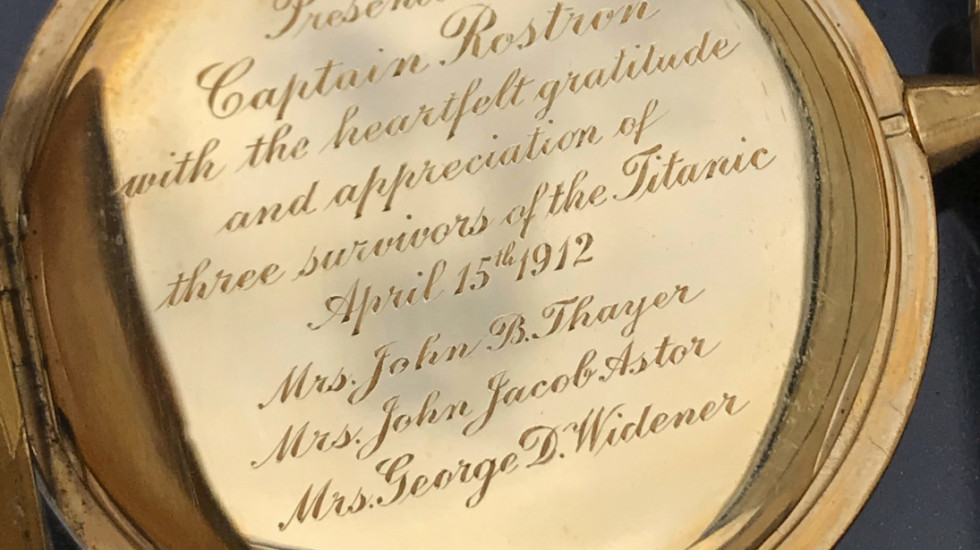 Captain Rostron
with the heartfelt gratitude
and appreciation of
three survivors of the Titanic
April 15th 1912
Mrs. John B. Thayer
Mrs. John Jacob Astor
Mrs. George D. Widener